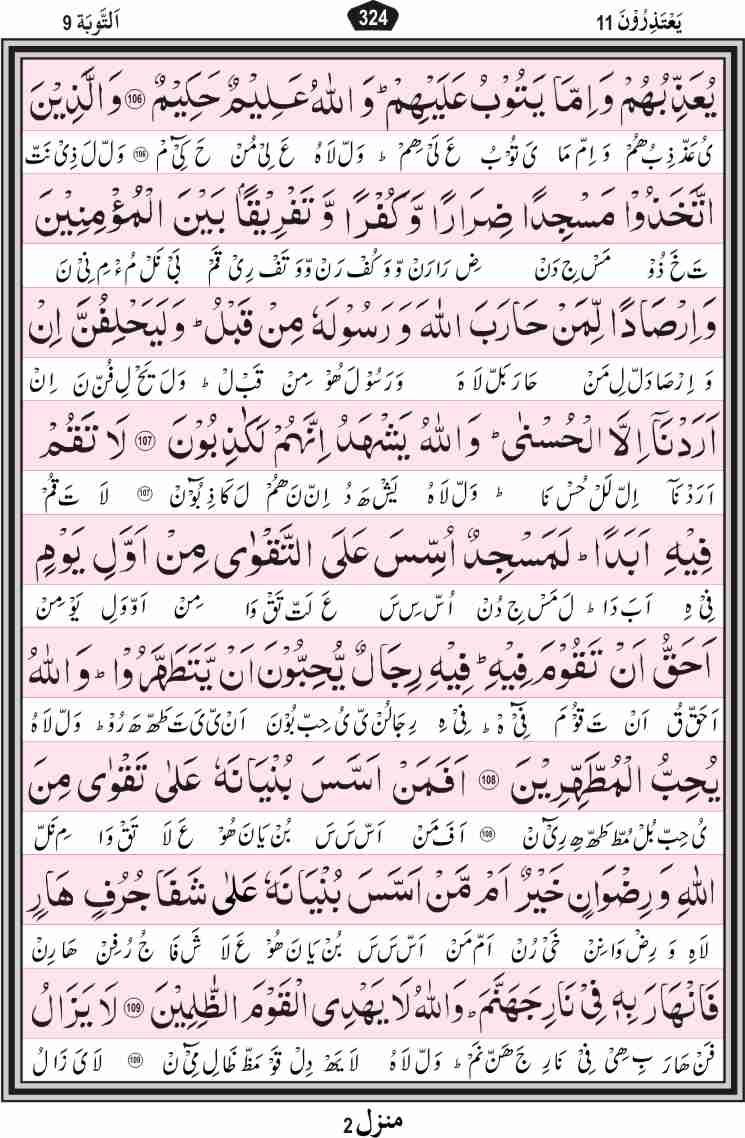 یَعْتَذِرُوْنَ 11 324 اَلتَّوبَة 9
یُعَذِّبُهُمْ وَ اِمَّا یَتُوْبُ عَلَیْهِمْ ؕ وَ اللّٰهُ عَلِیْمٌ حَکِیْمٌ 106 وَ الَّذِیْنَ
یُ عَذّ ذِ بُ ھُمْ وَ اِمّ مَا یَ تُوْ بُ عَ لَیْ ھِمْ ؕ وَلّ لَا ہُ عَ لِیْ مُنْ حَ کِیْٓ مْ 106 وَلّ لَ ذِیْ نَتّ
اتَّخَذُوْا مَسْجِدًا ضِرَارًا وَّ کُفْرًا وَّ تَفْرِیْقًۢا بَیْنَ الْمُؤْمِنِیْنَ
تَ خَ ذُوْ مَسْ جِ دَنْ ضِ رَا رَنْ وّ وَ کُفْ رَنْ وّ وَ تَفْ رِیْ قَمْ بَیْ نَلْ مُءْ مِ نِیْ نَ
وَ اِرْصَادًا لِّمَنْ حَارَبَ اللّٰهَ وَ رَسُوْلَهٗ مِنْ قَبْلُ ؕ وَ لَیَحْلِفُنَّ اِنْ
وَ اِ رْ صَا دَلّ لِ مَنْ حَا رَ بَلّ لَا ہَ وَ رَ سُوْ لَ ھُوْ مِنْ قَبْ لْ ؕ وَ لَ یَحْ لِ فُنّ نَ اِنْ
اَرَدْنَاۤ اِلَّا الْحُسْنٰی ؕ وَ اللّٰهُ یَشْهَدُ اِنَّهُمْ لَکٰذِبُوْنَ 107 لَا تَقُمْ
اَ رَدْ نَآ اِلّ لَلْ حُسْ نَا ؕ وَلّ لَا ہُ یَشْ ھَ دُ اِنّ نَ ھُمْ لَ کَا ذِ بُوْٓ نْ 107 لَا تَ قُمْ
فِیْهِ اَبَدًا ؕ لَمَسْجِدٌ اُسِّسَ عَلَی التَّقْوٰی مِنْ اَوَّلِ یَوْمٍ
فِیْ ہِ اَ بَ دَا ؕ لَ مَسْ جِ دُنْ اُسّ سِ سَ عَ لَتّ تَقْ وَا مِنْ اَوّ وَ لِ یَوْ مِنْ
اَحَقُّ اَنْ تَقُوْمَ فِیْهِ ؕ فِیْهِ رِجَالٌ یُّحِبُّوْنَ اَنْ یَّتَطَهَّرُوْا ؕ وَ اللّٰهُ
اَ حَقّ قُ اَنْ تَ قُوْ مَ فِیْٓ ہْ ؕ فِیْ ہِ رِ جَا لُنْ یّ یُ حِبّ بُوْنَ اَنْ یّ یَ تَ طَھّ ھَ رُوْ ؕ وَلّ لَا ہُ
یُحِبُّ الْمُطَّهِّرِیْنَ 108 اَفَمَنْ اَسَّسَ بُنْیَانَهٗ عَلٰی تَقْوٰی مِنَ
یُ حِبّ بُلْ مُطّ طَھّ ھِ رِیْٓ نْ 108 اَ فَ مَنْ اَسّ سَ سَ بُنْ یَا نَ ھُوْ عَ لَا تَقْ وَا مِ نَلّ
اللّٰهِ وَ رِضْوَانٍ خَیْرٌ اَمْ مَّنْ اَسَّسَ بُنْیَانَهٗ عَلٰی شَفَا جُرُفٍ هَارٍ
لَا ہِ وَ رِضْ وَا نِنْ خَیْ رُنْ اَمّ مَنْ اَسّ سَ سَ بُنْ یَا نَ ھُوْ عَ لَا شَ فَا جُ رُ فِنْ ھَا رِنْ
فَانْهَارَ بِهٖ فِیْ نَارِ جَهَنَّمَ ؕ وَ اللّٰهُ لَا یَهْدِی الْقَوْمَ الظّٰلِمِیْنَ 109 لَا یَزَالُ
فَنْ ھَا رَ بِ ھِیْ فِیْ نَا رِ جَ ھَنّ نَمْ ؕ وَلّ لَا ہُ لَا یَھْ دِلْ قَوْ مَظّ ظَا لِ مِیْٓ نْ 109 لَا یَ زَا لُ
منزل 2